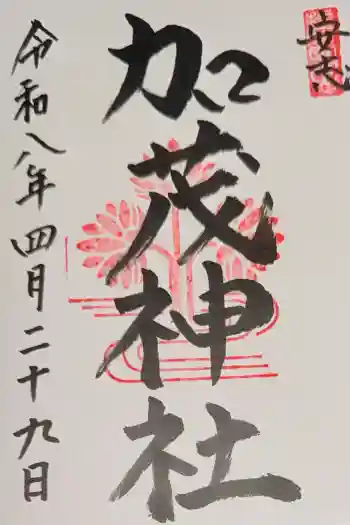 加茂神社
令和八年四月二十九日